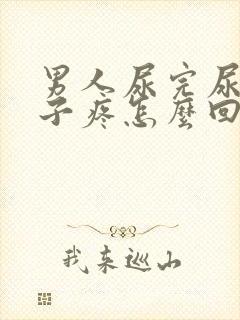 男人尿完尿
子疼怎麼回
我来巡山